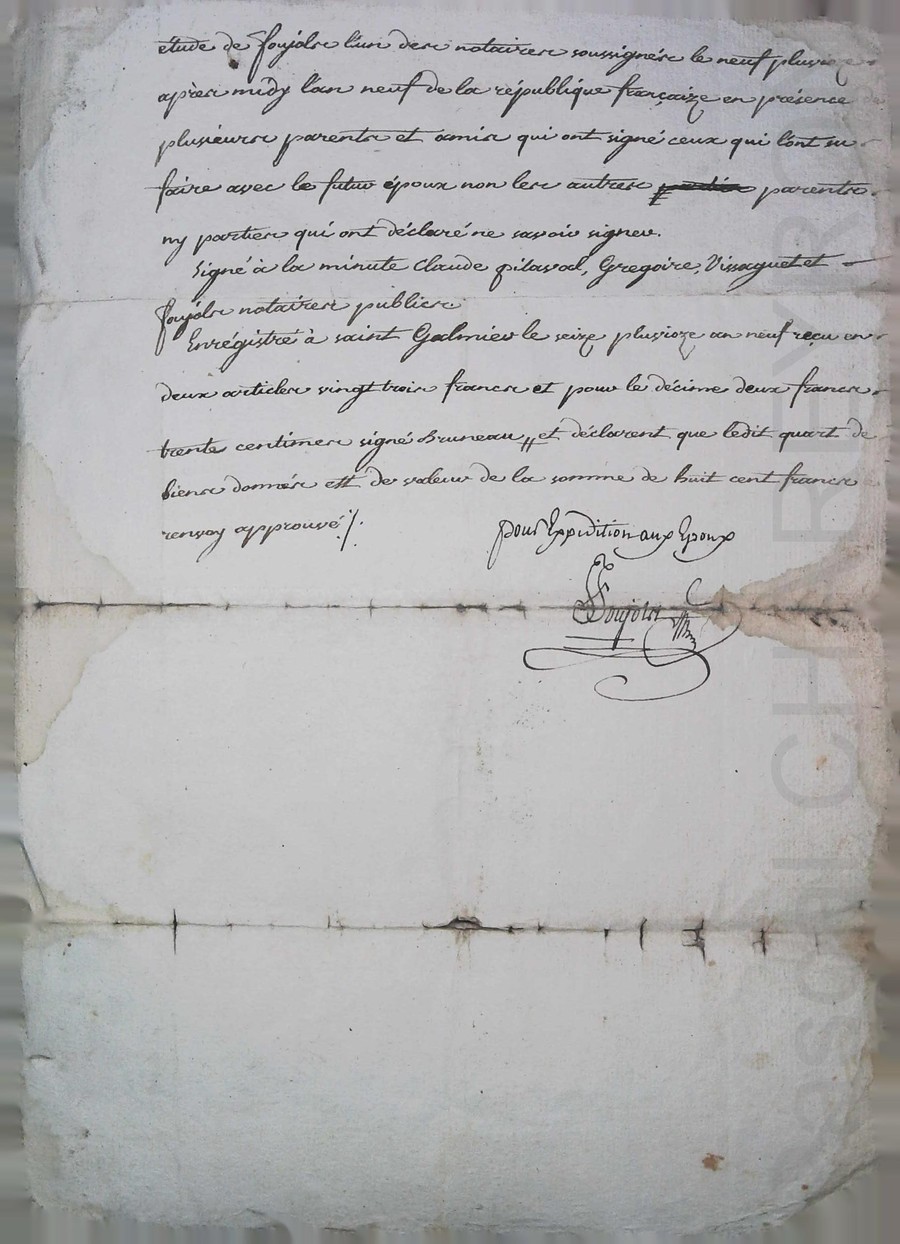 etude de foujols l'un des notaires soussignés le neuf pluvioze
après midy l'an neuf de la république françaize en présence de
plusieurs parents et amis qui ont signé ceux qui l'ont su
faire avec le futur époux non les autres parents
ny parties qui ont déclaré ne savoir signer.
Signé à la minute Claude pilaval, Gregoire, Vissaguet et
foujols notaires publics
Enrégistré à saint Galmier le seize pluvioze an neuf reçu en
deux articles vingt trois francs et pour le décime deux francs
trente centimes signé Bruneau, et déclarent que ledit quart de
biens donnés est de valeur de la somme de huit cent francs
renvoy approuvé ./.
pour Expédition aux Epoux
Foujols
Pascal CHAREYRON